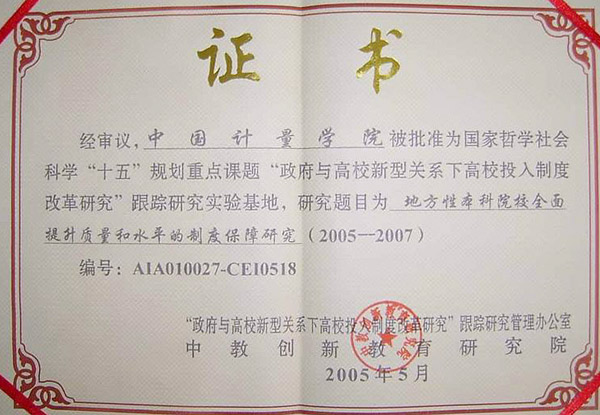 证书
经审议，中国计量学院被批准为国家哲学社会
科学“十五”规划重点课题“政府与高校新型关系下高校投入制度
改革研究”跟踪研究实验基地，研究题目为 地方性本科院校全面
提升质量和水平的制度保障研究（2005—2007）
编号：AIA010027-CEI0518
“政府与高校新型关系下高校投入制度改革研究”跟踪研究管理办公室
中教创新教育研究院
2005年5月